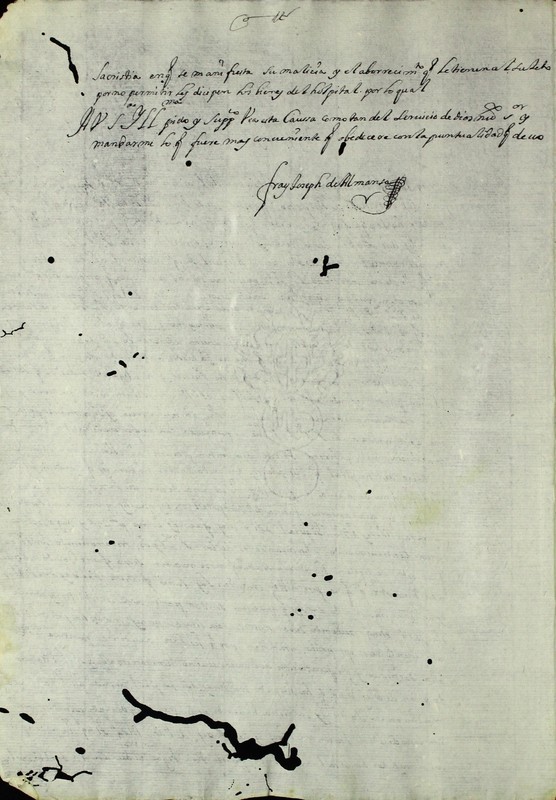 sacristia enq̃ se manifiesta su malicia y el aborrecim.to q̃ le tienen al
por no permitir les disipen los bienes del hospital. por lo qual
A V. S. Ill.ma pido y supp.co Vea esta Caussa como tan del servicio de dios nro S.or y
mandarme lo q̃ fuere mas conveniente q̃ obedecere con la puntualidad q̃ devo
fray Joseph de Almansa